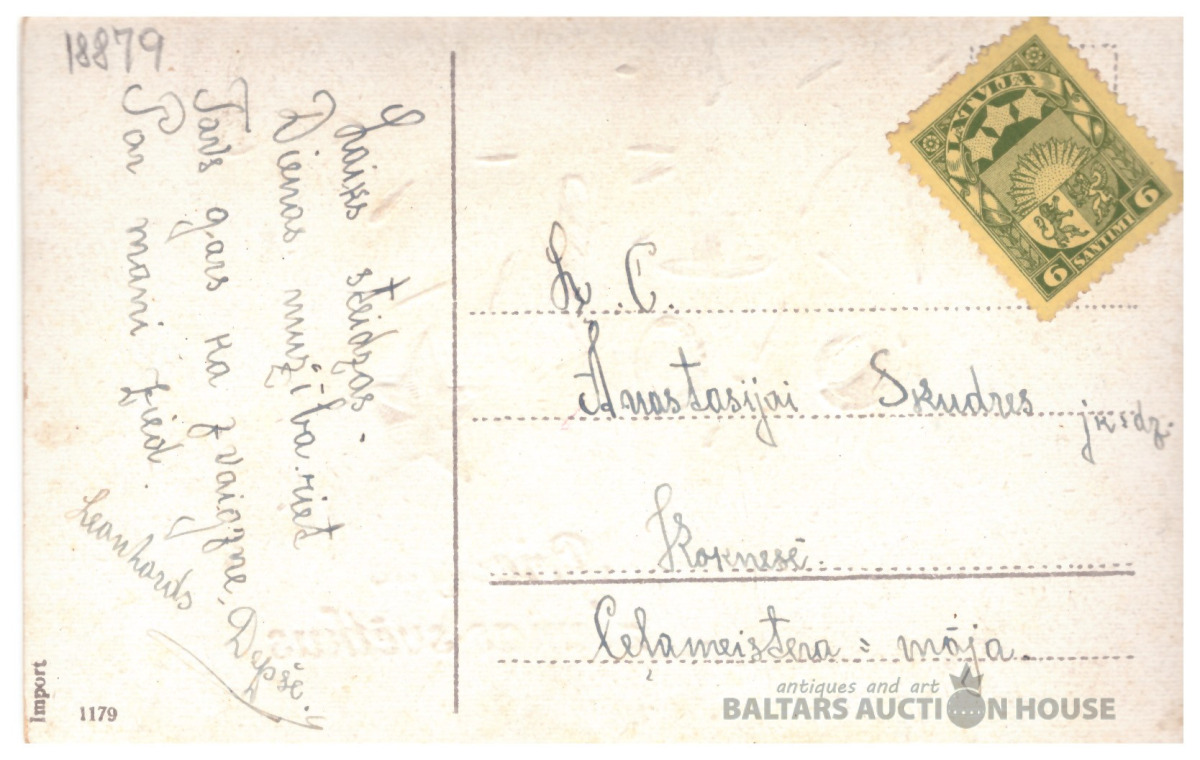 18879
Laiks steidzas.
Dienas mužība riet
Tavs gars ka zvaigzne,
Par mani zied.
Leonhards
LATVIJA
6 SANTIMI 6
L. C.
Anastasijai Skudres jkdz.
Koknesē.
Ceļameistera = māja.
Import
1179
antiques and art
BALTARS AUCTION HOUSE